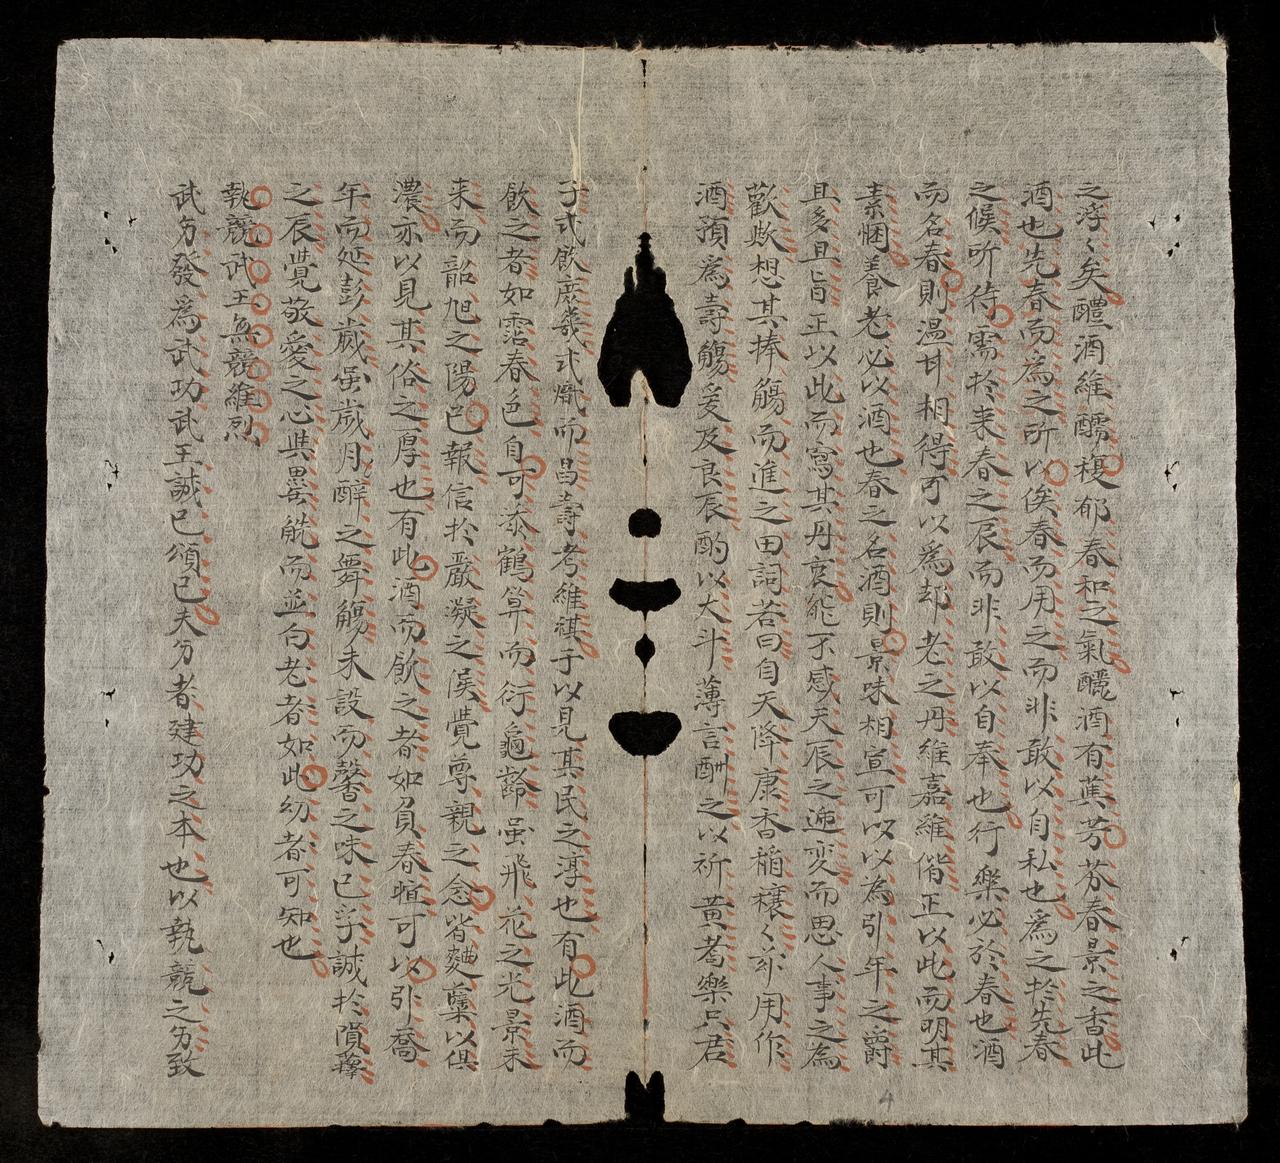 之浮〻矣醴酒維醹複郁春和之氣釃酒有蕡芳芬春景之香此
酒也先春而為之所以俟春而用之而非敢以自私也爲之於先春
之候所待需於来春之辰而非敢以自奉也行樂必於春也酒
而名春則温甘相得可以為却老之丹維嘉維偕正以此而明其
素悃養老必以酒也春之名酒則景味相宣可以以為引年之爵
且多且旨正以此而寫其丹衷能不感天辰之逓变而思人事之為
歡歟想其捧觴而進之田詞若曰自天降康香稲穰〻尔用作
酒預爲壽觴爰及良辰酌以大斗薄言酬之以祈黃耇樂只君
子式飲庶幾式熾而昌壽考維祺于以見其民之淳也有此酒而
飲之者如霑春色自可添鶴算而衍龜齡虽飛花之光景未
来而韶旭之陽已報信於嚴凝之候覺尊親之念皆麯蘖以俱
濃亦以見其俗之厚也有此酒而飲之者如負春暄可以引喬
年而延彭歲虽歲月醉之舞觴未設而馨香之味已孚誠於隕蘀
之辰覺敬愛之心與罍觥而並向老者如此幼者可知也
執競武王無競維烈
武劳發爲武功武王誠已頌已夫劳者建功之本也以執競之劳致